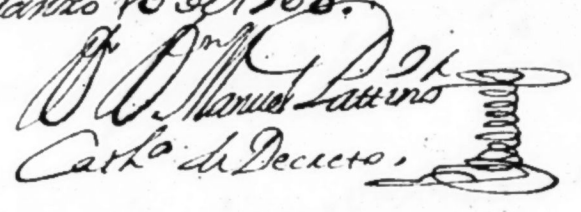 Dr Dn Manuel Pattino
Cathᵒ de Decreto.